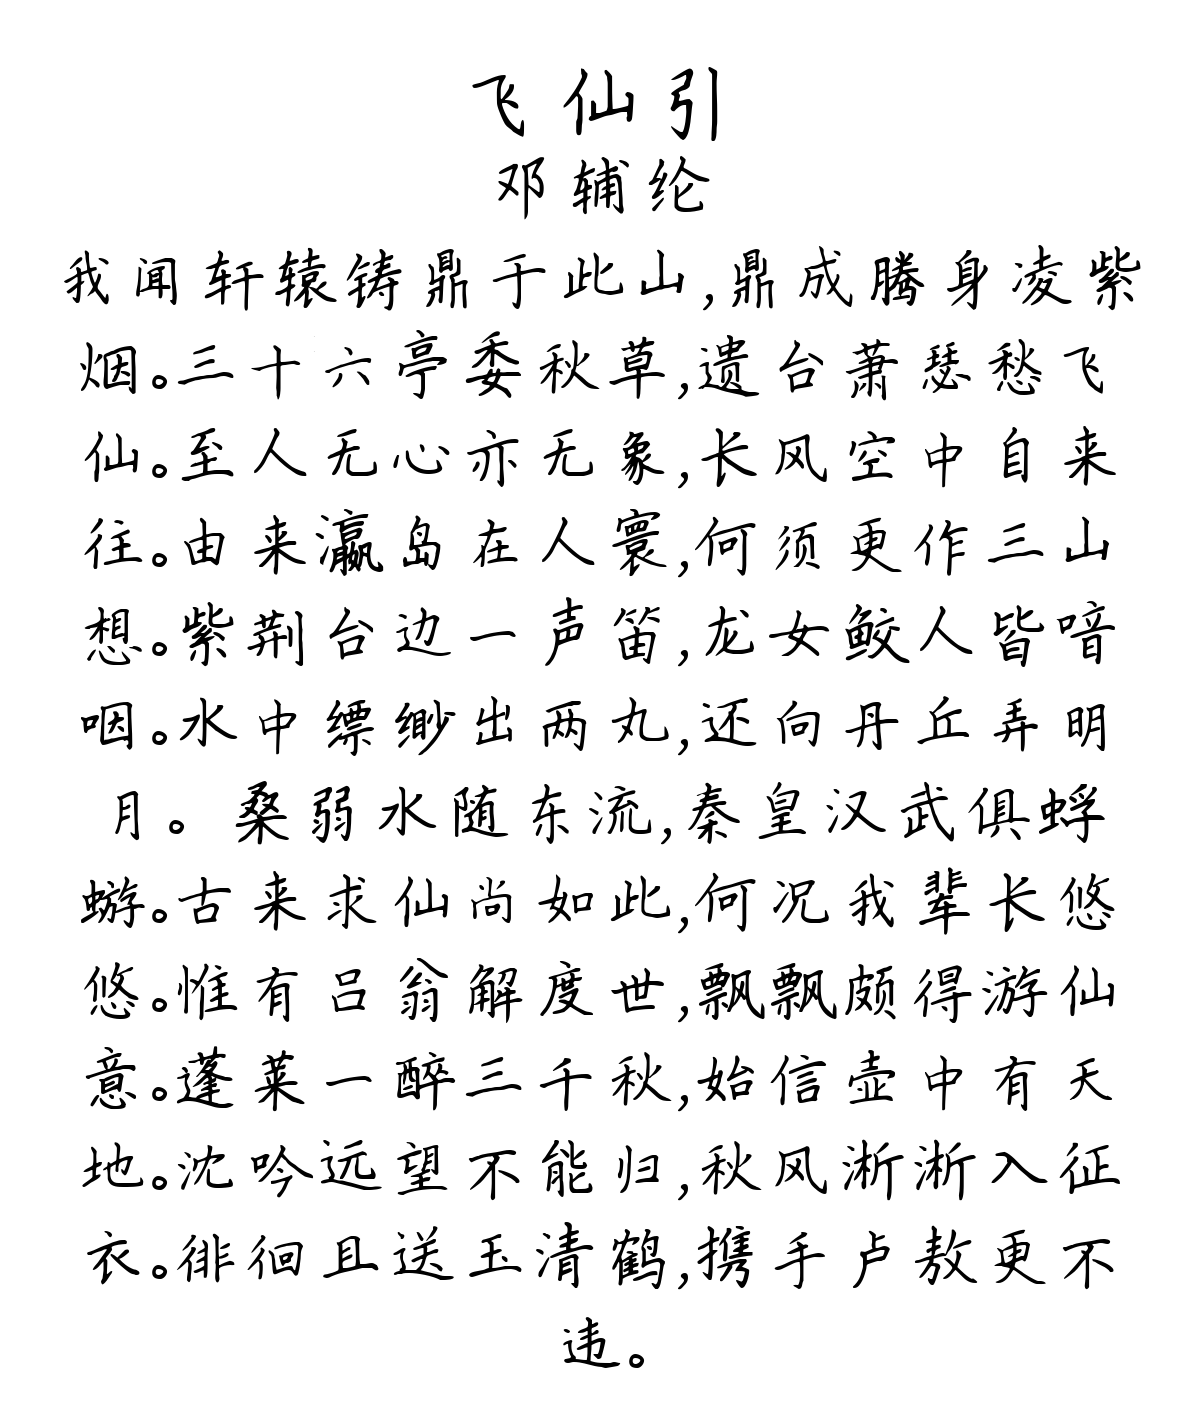 飞仙引
邓辅纶
我闻轩辕铸鼎于此山,鼎成腾身凌紫
烟。三十六亭委秋草,遗台萧瑟愁飞
仙。至人无心亦无象,长风空中自来
往。由来瀛岛在人寰,何须更作三山
想。紫荆台边一声笛,龙女鲛人皆喑
咽。水中缥缈出两丸,还向丹丘弄明
月。桑弱水随东流,秦皇汉武俱蜉
蝣。古来求仙尚如此,何况我辈长悠
悠。惟有吕翁解度世,飘飘颇得游仙
意。蓬莱一醉三千秋,始信壶中有天
地。沈吟远望不能归,秋风淅淅入征
衣。徘徊且送玉清鹤,携手卢敖更不
违。